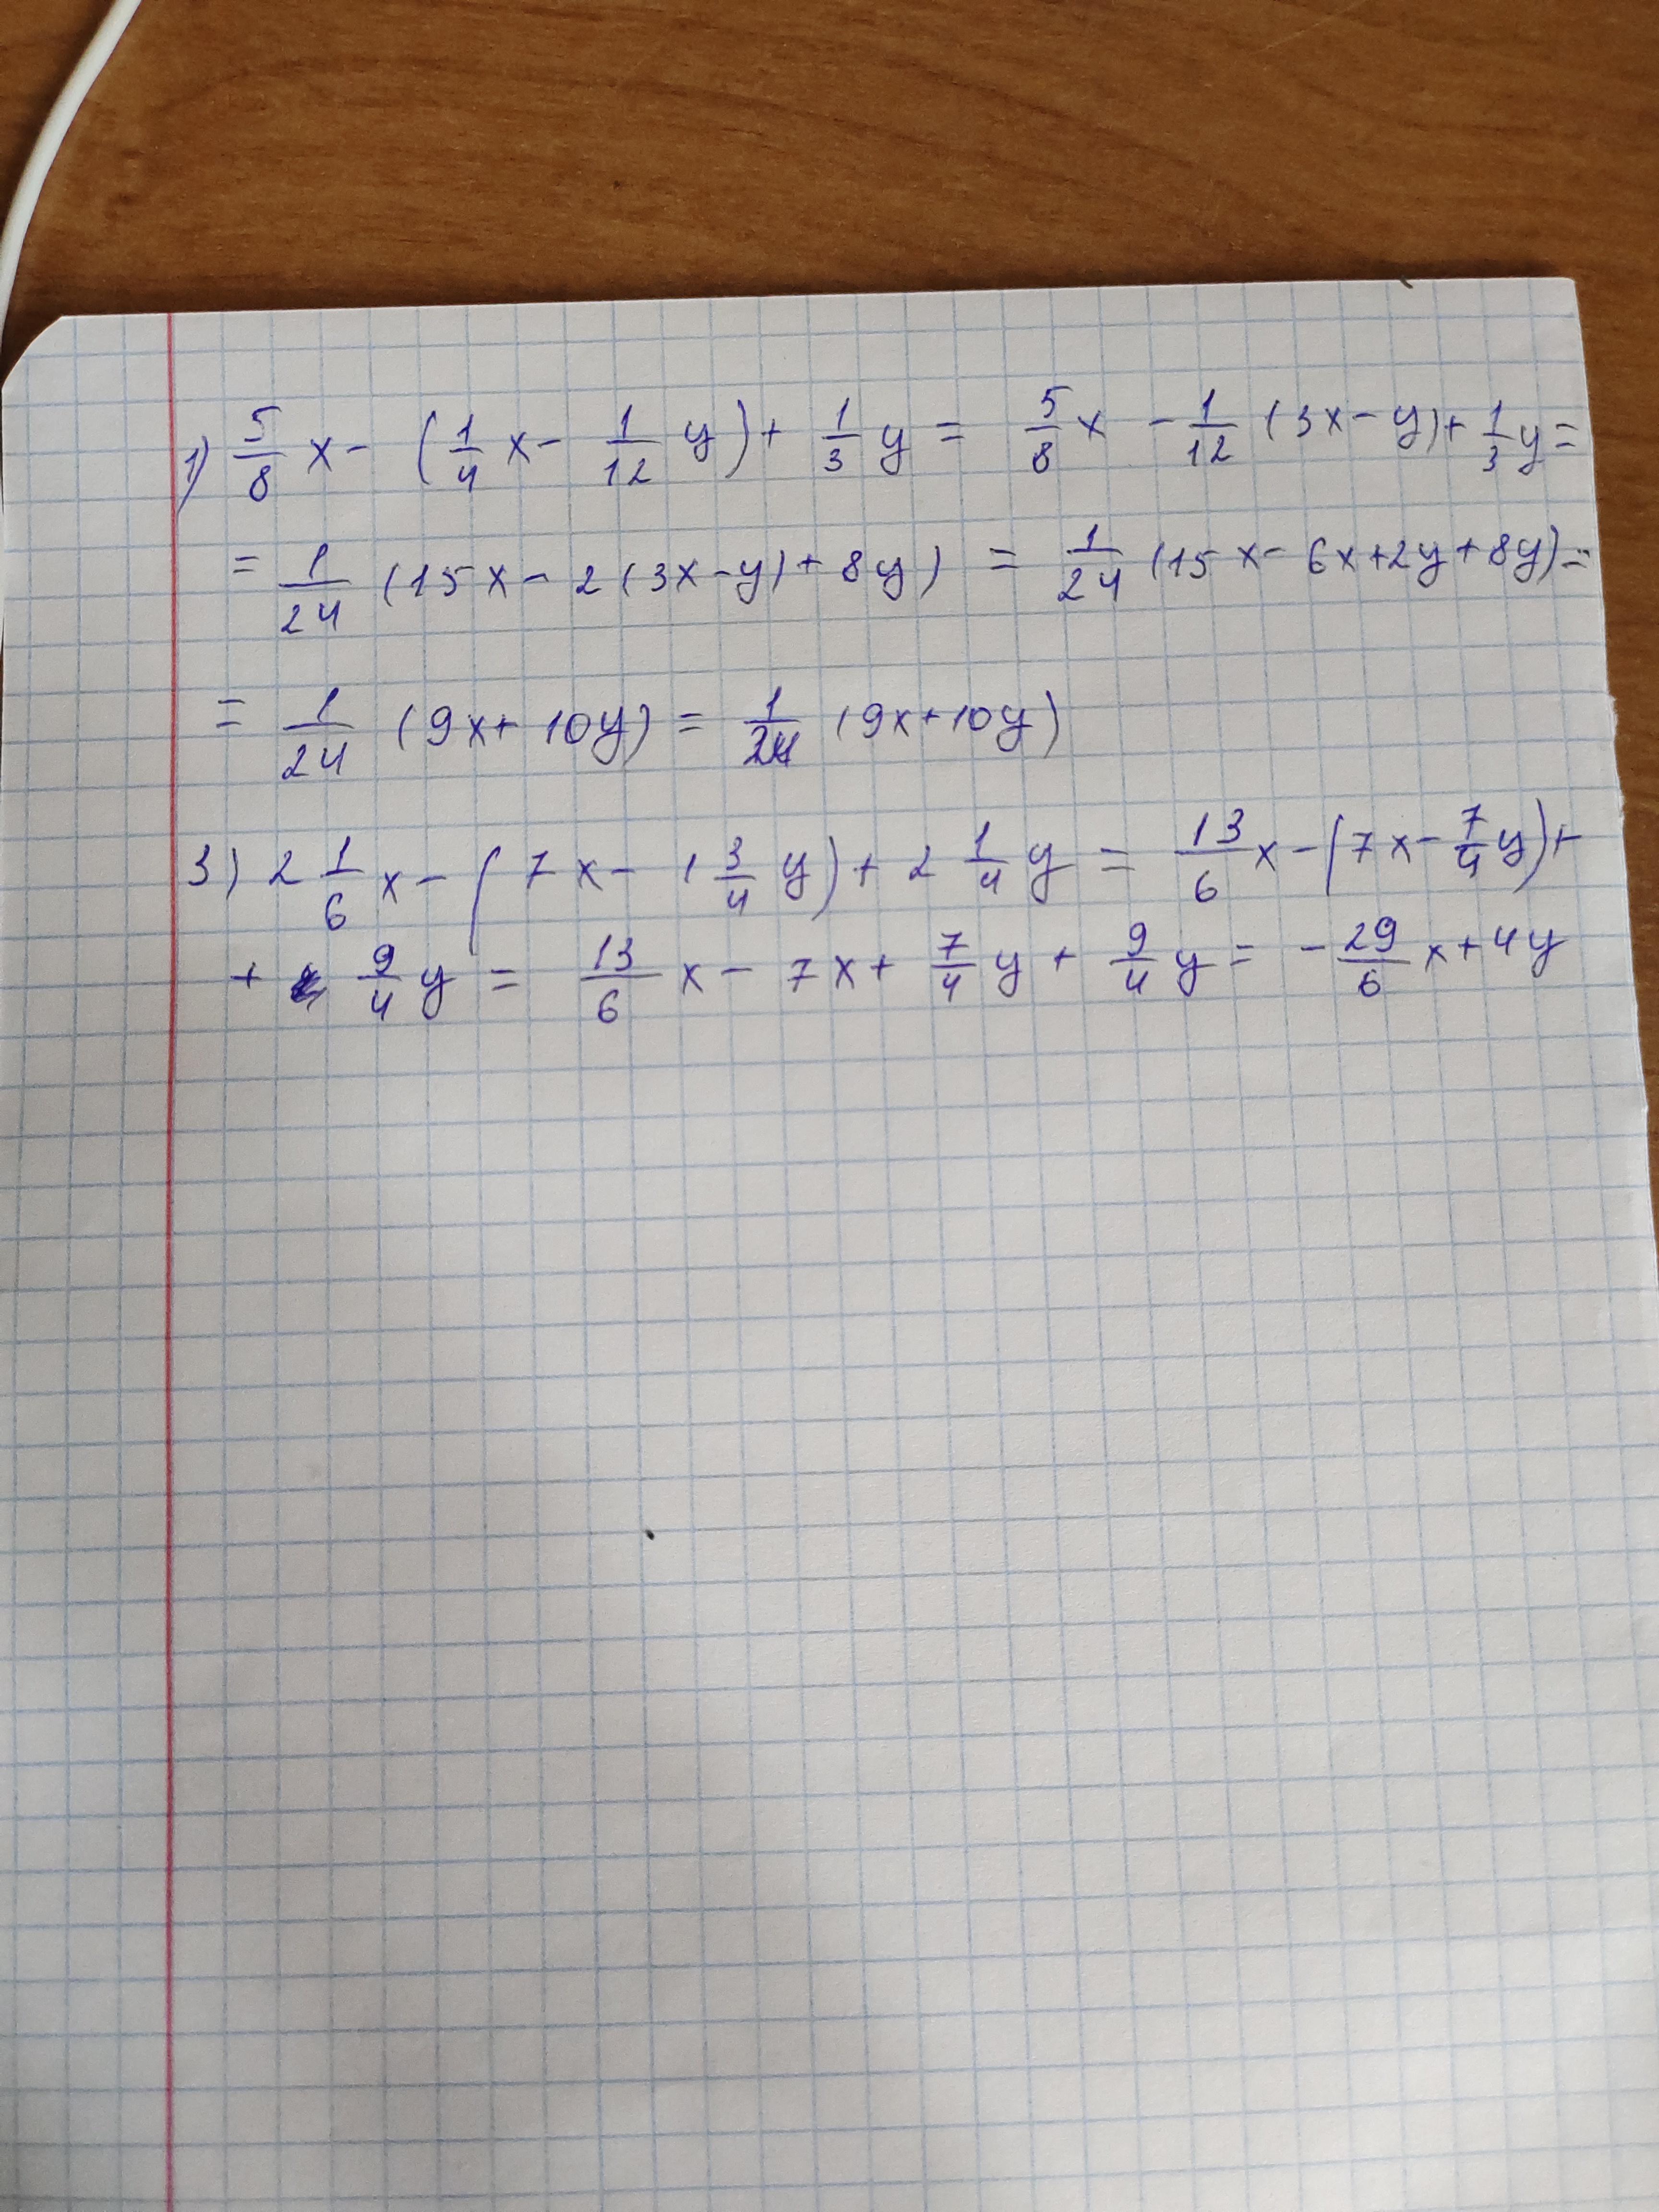 1) 5/8 x - (1/4 x - 1/12 y) + 1/3 y = 5/8 x - 1/12 (3x - y) + 1/3 y =
= 1/24 (15x - 2(3x - y) + 8y) = 1/24 (15x - 6x + 2y + 8y) =
= 1/24 (9x + 10y) = 1/24 (9x + 10y)
3) 2 1/6 x - (7x - 1 3/4 y) + 2 1/4 y = 13/6 x - (7x - 7/4 y) +
+ 9/4 y = 13/6 x - 7x + 7/4 y + 9/4 y = - 29/6 x + 4y